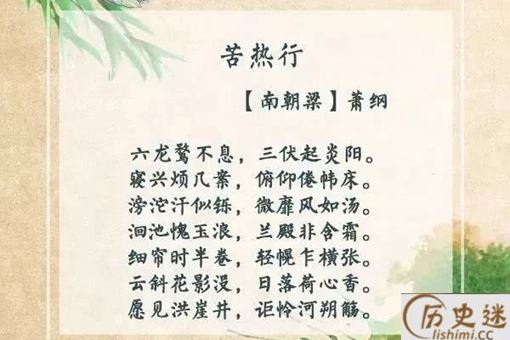 苦热行
【南朝梁】萧纲
六龙骛不息，三伏起炎阳。
寝兴烦几案，俯仰倦帏床。
滂沱汗似铄，微靡风如汤。
洄池愧玉浪，兰殿非含霜。
细帘时半卷，轻幌乍横张。
云斜花影没，日落荷心香。
愿见洪崖井，讵怜河朔觞。
历史迷
lishimi.cc